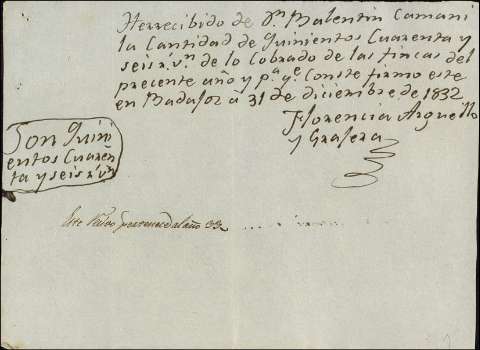 Herrecibido de Dn Balentin Camani
la Cantidad de Quinientos Cuarenta y
seis rs vn de lo Cobrado de las fincas del
precente año y pa qe Conste firmo este
en Badajoz á 31 de diciembre de 1832
Florencia Arguello
y Grajera
Son Quini
entos Cuaren
ta y seis rs vn
Este Recivo pertenece al año 32